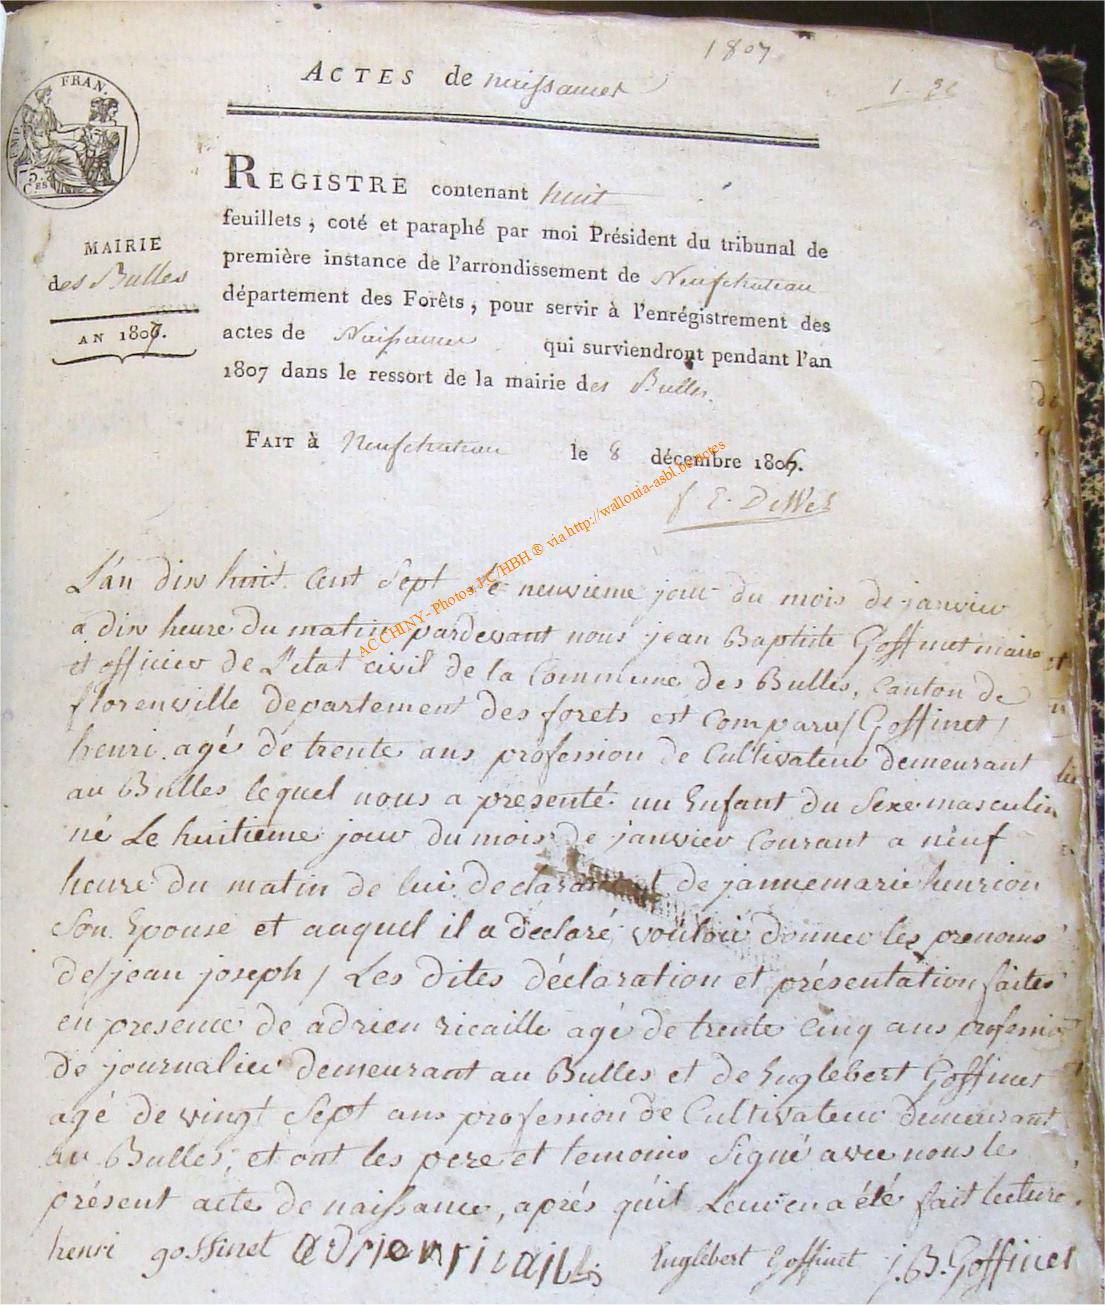 1807
ACTES de naissances
1. 32
FRAN.
75.
C.ES
REGISTRE contenant huit
feuillets, coté et paraphé par moi Président du tribunal de
première instance de l'arrondissement de Neufchateau
département des Forêts, pour servir à l'enrégistrement des
actes de Naissances qui surviendront pendant l'an
1807 dans le ressort de la mairie des Bulles.
MAIRIE
des Bulles
AN 1807.
FAIT à Neufchateau le 8 décembre 1806.
ACCHINY - Photos J-C HBH ® via http://wallonia-asbl.be/actes
L'an dix huit cent Sept le neuvieme jour du mois de janvier
a dix heure du matin pardevant nous jean Baptiste Goffinet maire
et officier de L'etat civil de la Commune des Bulles, Canton de
florenville departement des forets est Comparu / Goffinet /
henri agé de trente ans profession de Cultivateur demeurant
au Bulles lequel nous a presenté un Enfant du Sexe masculin
né Le huitieme jour du mois de janvier Courant a neuf
heure du matin de lui declarant de jannemarie henrion
Son Epouse et auquel il a déclaré vouloir donner les prenoms
de / jean joseph / Les dites déclaration et présentation faites
en presence de adrien ricaille agé de trente Cinq ans profession
de journalier demeurant au Bulles et de Englebert Goffinet
agé de vingt Sept ans profession de Cultivateur demeurant
au Bulles, et ont les pere et temoins Signé avec nous le
présent acte de naissance, aprés qu'il Leur en a été fait lecture.
henri goffinet adrien ricaille Englebert Goffinet J.B. Goffinet